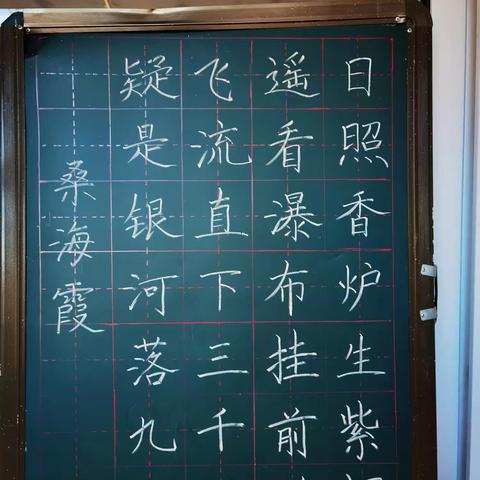 日照香炉生紫
遥看瀑布挂前
飞流直下三千
疑是银河落九
桑海霞